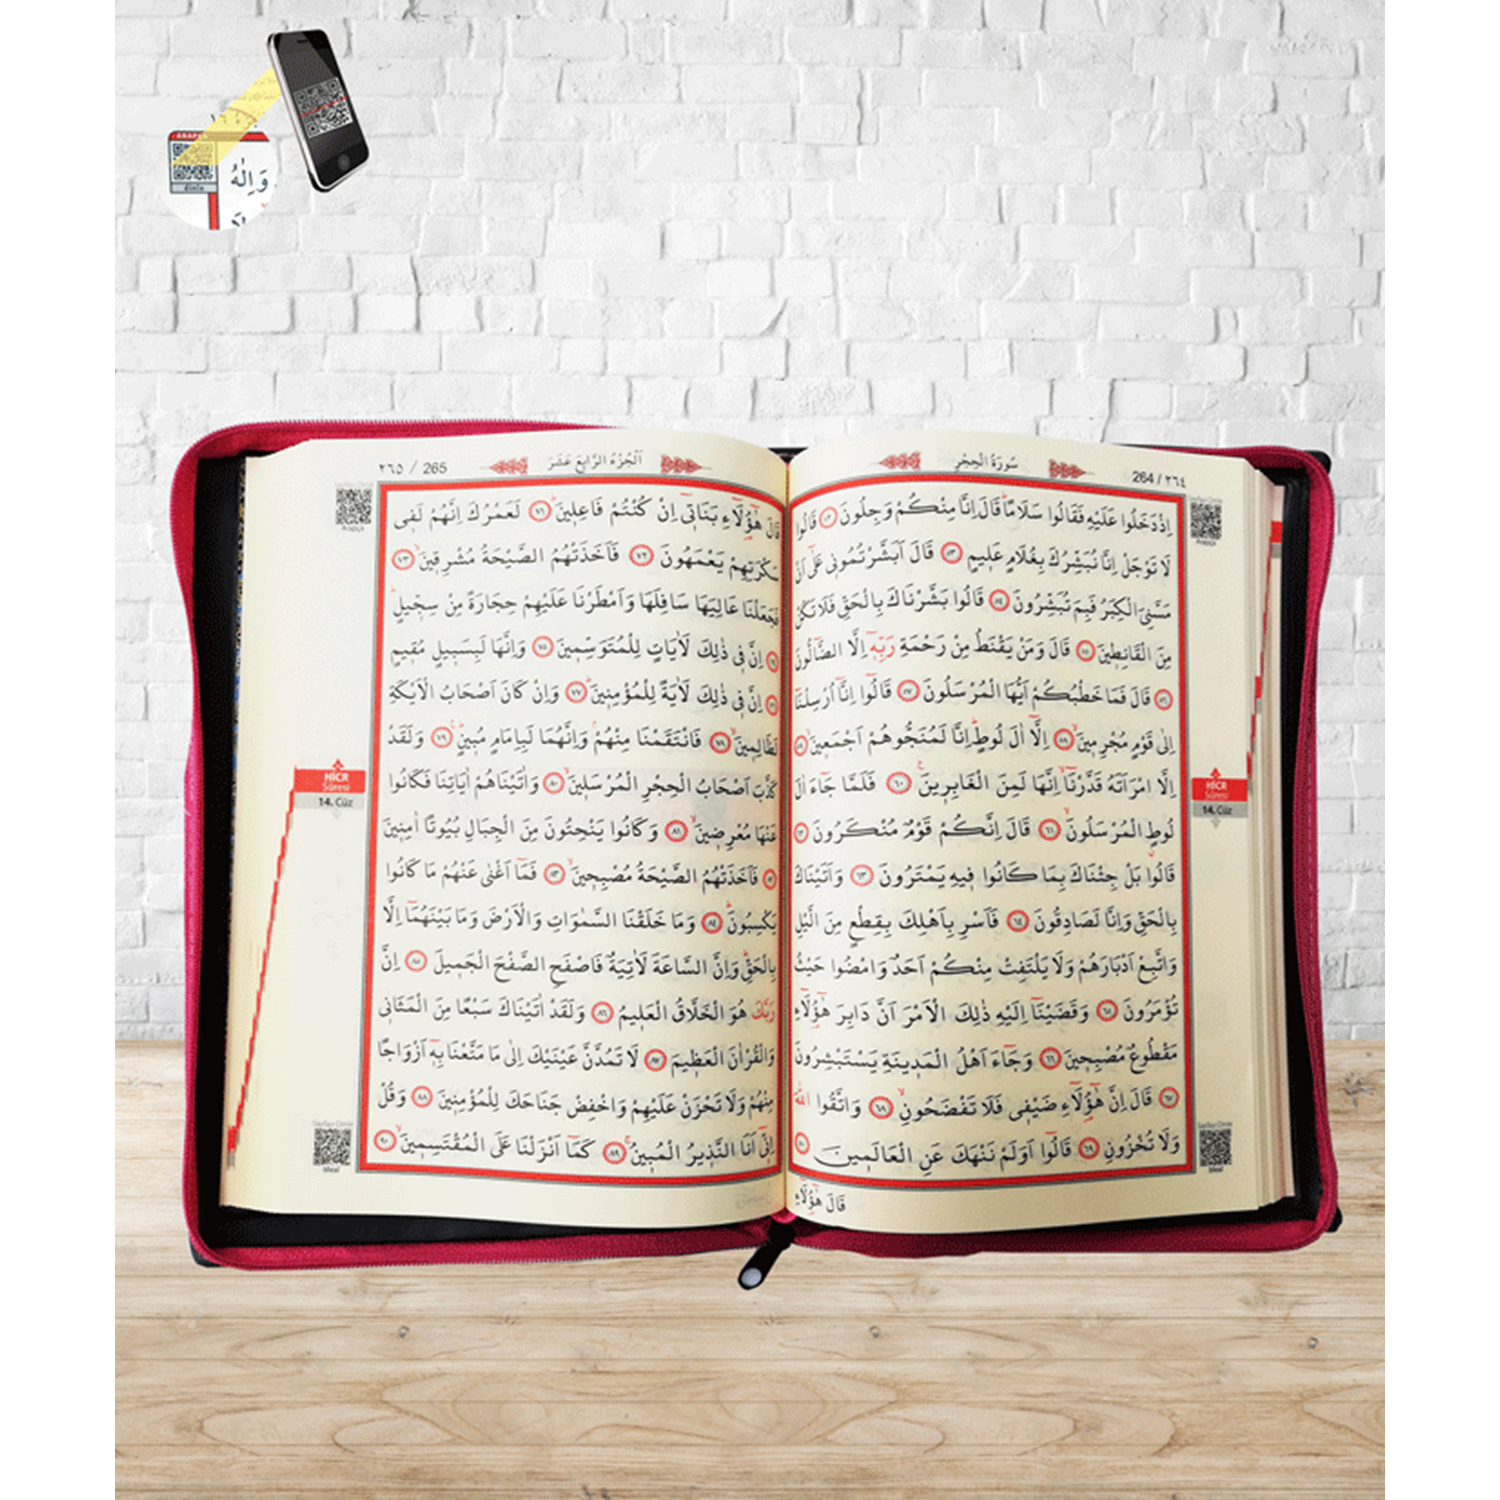 وَاِلٰهُ
سُورَةُ الْحِجْرِ
264 / ٢٦٤
اِذْ دَخَلُوا عَلَيْهِ فَقَالُوا سَلَامًاۜ قَالَ اِنَّا مِنْكُمْ وَجِلُونَ ﴿٥٢﴾ قَالُوا
لَا تَوْجَلْ اِنَّا نُبَشِّرُكَ بِغُلَامٍ عَلِيمٍ ﴿٥٣﴾ قَالَ اَبَشَّرْتُمُونِي عَلٰٓى اَنْ
مَسَّنِيَ الْكِبَرُ فَبِمَ تُبَشِّرُونَ ﴿٥٤﴾ قَالُوا بَشَّرْنَاكَ بِالْحَقِّ فَلَا تَكُنْ
مِنَ الْقَانِطِينَ ﴿٥٥﴾ قَالَ وَمَنْ يَقْنَطُ مِنْ رَحْمَةِ رَبِّهٖٓ اِلَّا الضَّٓالُّونَ
﴿٥٦﴾ قَالَ فَمَا خَطْبُكُمْ اَيُّهَا الْمُرْسَلُونَ ﴿٥٧﴾ قَالُٓوا اِنَّٓا اُرْسِلْنَٓا
اِلٰى قَوْمٍ مُجْرِمِينَۙ ﴿٥٨﴾ اِلَّٓا اٰلَ لُوطٍۜ اِنَّا لَمُنَجُّوهُمْ اَجْمَعِينَۙ ﴿٥٩﴾
اِلَّا امْرَاَتَهُ قَدَّرْنَٓاۙ اِنَّهَا لَمِنَ الْغَابِرِينَ۟ ﴿٦٠﴾ فَلَمَّا جَٓاءَ اٰلَ
لُوطٍ الْمُرْسَلُونَۙ ﴿٦١﴾ قَالَ اِنَّكُمْ قَوْمٌ مُنْكَرُونَ ﴿٦٢﴾
قَالُوا بَلْ جِئْنَاكَ بِمَا كَانُوا فِيهِ يَمْتَرُونَ ﴿٦٣﴾ وَاَتَيْنَاكَ
بِالْحَقِّ وَاِنَّا لَصَادِقُونَ ﴿٦٤﴾ فَاَسْرِ بِاَهْلِكَ بِقِطْعٍ مِنَ الَّيْلِ
وَاتَّبِعْ اَدْبَارَهُمْ وَلَا يَلْتَفِتْ مِنْكُمْ اَحَدٌ وَامْضُوا حَيْثُ
تُؤْمَرُونَ ﴿٦٥﴾ وَقَضَيْنَٓا اِلَيْهِ ذٰلِكَ الْاَمْرَ اَنَّ دَابِرَ هٰٓؤُ۬لَٓاءِ
مَقْطُوعٌ مُصْبِحِينَ ﴿٦٦﴾ وَجَٓاءَ اَهْلُ الْمَدِينَةِ يَسْتَبْشِرُونَ
﴿٦٧﴾ قَالَ اِنَّ هٰٓؤُ۬لَٓاءِ ضَيْفِي فَلَا تَفْضَحُونِۙ ﴿٦٨﴾ وَاتَّقُوا اللّٰهَ
وَلَا تُخْزُونِ ﴿٦٩﴾ قَالُٓوا اَوَلَمْ نَنْهَكَ عَنِ الْعَالَمِينَ ﴿٧٠﴾
قَالَ هٰٓؤُ۬لَٓاءِ
HİCR
Sûresi
14. Cüz
Meal
اَلْجُزْءُ الرَّابِعَ عَشَرَ
٢٦٥ / 265
قَالَ هٰٓؤُ۬لَٓاءِ بَنَاتِٓي اِنْ كُنْتُمْ فَاعِلِينَۜ ﴿٧١﴾ لَعَمْرُكَ اِنَّهُمْ لَفِي
سَكْرَتِهِمْ يَعْمَهُونَ ﴿٧٢﴾ فَاَخَذَتْهُمُ الصَّيْحَةُ مُشْرِقِينَۙ ﴿٧٣﴾
فَجَعَلْنَا عَالِيَهَا سَافِلَهَا وَاَمْطَرْنَا عَلَيْهِمْ حِجَارَةً مِنْ سِجِّيلٍۜ
﴿٧٤﴾ اِنَّ فِي ذٰلِكَ لَاٰيَاتٍ لِلْمُتَوَسِّمِينَ ﴿٧٥﴾ وَاِنَّهَا لَبِسَبِيلٍ مُقِيمٍ
﴿٧٦﴾ اِنَّ فِي ذٰلِكَ لَاٰيَةً لِلْمُؤْمِنِينَۜ ﴿٧٧﴾ وَاِنْ كَانَ اَصْحَابُ الْاَيْكَةِ
لَظَالِمِينَۙ ﴿٧٨﴾ فَانْتَقَمْنَا مِنْهُمْۢ وَاِنَّهُمَا لَبِاِمَامٍ مُبِينٍۜ۟ ﴿٧٩﴾ وَلَقَدْ
كَذَّبَ اَصْحَابُ الْحِجْرِ الْمُرْسَلِينَۙ ﴿٨٠﴾ وَاٰتَيْنَاهُمْ اٰيَاتِنَا فَكَانُوا
عَنْهَا مُعْرِضِينَۙ ﴿٨١﴾ وَكَانُوا يَنْحِتُونَ مِنَ الْجِبَالِ بُيُوتًا اٰمِنِينَ
﴿٨٢﴾ فَاَخَذَتْهُمُ الصَّيْحَةُ مُصْبِحِينَۙ ﴿٨٣﴾ فَمَٓا اَغْنٰى عَنْهُمْ مَا كَانُوا
يَكْسِبُونَۜ ﴿٨٤﴾ وَمَا خَلَقْنَا السَّمٰوَاتِ وَالْاَرْضَ وَمَا بَيْنَهُمَٓا اِلَّا
بِالْحَقِّۜ وَاِنَّ السَّاعَةَ لَاٰتِيَةٌ فَاصْفَحِ الصَّفْحَ الْجَمِيلَ ﴿٨٥﴾ اِنَّ
رَبَّكَ هُوَ الْخَلَّاقُ الْعَلِيمُ ﴿٨٦﴾ وَلَقَدْ اٰتَيْنَاكَ سَبْعًا مِنَ الْمَثَانِي
وَالْقُرْاٰنَ الْعَظِيمَ ﴿٨٧﴾ لَا تَمُدَّنَّ عَيْنَيْكَ اِلٰى مَا مَتَّعْنَا بِهٖٓ اَزْوَاجًا
مِنْهُمْ وَلَا تَحْزَنْ عَلَيْهِمْ وَاخْفِضْ جَنَاحَكَ لِلْمُؤْمِنِينَ ﴿٨٨﴾ وَقُلْ
اِنِّٓي اَنَا النَّذِيرُ الْمُبِينُۚ ﴿٨٩﴾ كَمَٓا اَنْزَلْنَا عَلَى الْمُقْتَسِمِينَۙ ﴿٩٠﴾
HİCR
Sûresi
14. Cüz
Meal